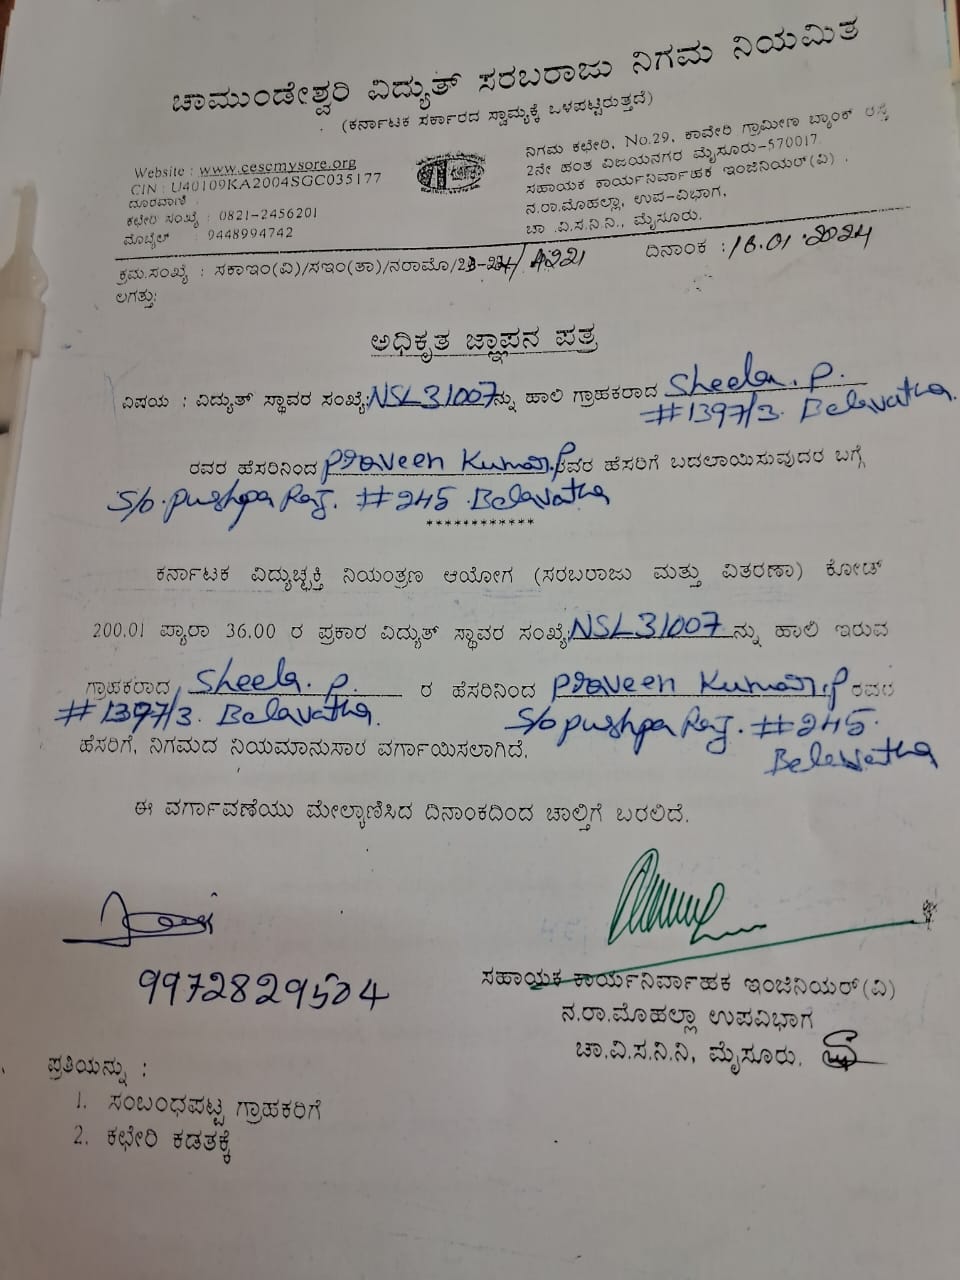 ಚಾಮುಂಡೇಶ್ವರಿ ವಿದ್ಯುತ್ ಸರಬರಾಜು ನಿಗಮ ನಿಯಮಿತ
(ಕರ್ನಾಟಕ ಸರ್ಕಾರದ ಸ್ವಾಮ್ಯಕ್ಕೆ ಒಳಪಟ್ಟಿರುತ್ತದೆ)
Website : www.cescmysore.org
CIN : U40109KA2004SGC035177
ದೂರವಾಣಿ :
ಕಛೇರಿ ಸಂಖ್ಯೆ : 0821-2456201
ಮೊಬೈಲ್ : 9448994742
ನಿಗಮ ಕಛೇರಿ, No.29, ಕಾವೇರಿ ಗ್ರಾಮೀಣ ಬ್ಯಾಂಕ್ ರಸ್ತೆ
2ನೇ ಹಂತ ವಿಜಯನಗರ ಮೈಸೂರು-570017.
ಸಹಾಯಕ ಕಾರ್ಯನಿರ್ವಾಹಕ ಇಂಜಿನಿಯರ್(ವಿ) ,
ನ.ರಾ.ಮೊಹಲ್ಲಾ, ಉಪ-ವಿಭಾಗ,
ಚಾ .ವಿ.ಸ.ನಿ.ನಿ., ಮೈಸೂರು.
ಕ್ರಮ.ಸಂಖ್ಯೆ : ಸಕಾಇಂ(ವಿ)/ಸಇಂ(ತಾ)/ನರಾಮೊ/23-24/ A221
ದಿನಾಂಕ : 16.01.2024
ಲಗತ್ತು:
ಅಧಿಕೃತ ಜ್ಞಾಪನ ಪತ್ರ
ವಿಷಯ : ವಿದ್ಯುತ್ ಸ್ಥಾವರ ಸಂಖ್ಯೆ: NSL31007 ನ್ನು ಹಾಲಿ ಗ್ರಾಹಕರಾದ Sheela. P.
#1397/3. Belavatha
ರವರ ಹೆಸರಿನಿಂದ Praveen Kumar. P ರವರ ಹೆಸರಿಗೆ ಬದಲಾಯಿಸುವುದರ ಬಗ್ಗೆ
S/o. Pushpa Raj. #245. Belavatha
************
ಕರ್ನಾಟಕ ವಿದ್ಯುಚ್ಛಕ್ತಿ ನಿಯಂತ್ರಣ ಆಯೋಗ (ಸರಬರಾಜು ಮತ್ತು ವಿತರಣಾ) ಕೋಡ್
200.01 ಪ್ಯಾರಾ 36.00 ರ ಪ್ರಕಾರ ವಿದ್ಯುತ್ ಸ್ಥಾವರ ಸಂಖ್ಯೆ: NSL31007 ನ್ನು ಹಾಲಿ ಇರುವ
ಗ್ರಾಹಕರಾದ Sheela. P. ರ ಹೆಸರಿನಿಂದ Praveen Kumar. P ರವರ
#1397/3. Belavatha. S/o pushpa Raj. #245.
Belavatha
ಹೆಸರಿಗೆ, ನಿಗಮದ ನಿಯಮಾನುಸಾರ ವರ್ಗಾಯಿಸಲಾಗಿದೆ.
ಈ ವರ್ಗಾವಣೆಯು ಮೇಲ್ಕಾಣಿಸಿದ ದಿನಾಂಕದಿಂದ ಚಾಲ್ತಿಗೆ ಬರಲಿದೆ.
9972829504
ಸಹಾಯಕ ಕಾರ್ಯನಿರ್ವಾಹಕ ಇಂಜಿನಿಯರ್(ವಿ)
ನ.ರಾ.ಮೊಹಲ್ಲಾ ಉಪವಿಭಾಗ
ಚಾ.ವಿ.ಸ.ನಿ.ನಿ, ಮೈಸೂರು.
ಪ್ರತಿಯನ್ನು :
1. ಸಂಬಂಧಪಟ್ಟ ಗ್ರಾಹಕರಿಗೆ
2. ಕಛೇರಿ ಕಡತಕ್ಕೆ